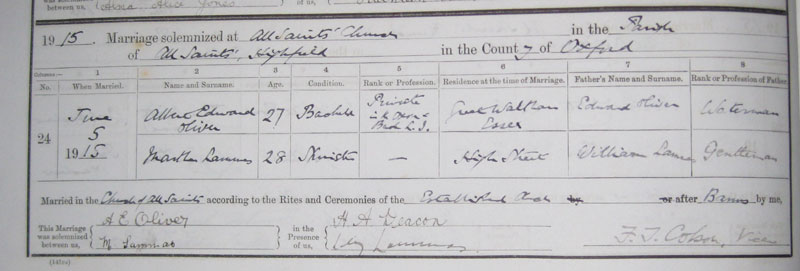 was solemnized
between us,
of us,
1915. Marriage solemnized at All Saints' Church in the Parish
of All Saints', Highfield in the County of Oxford
Columns:— 1 2 3 4 5 6 7 8
No. When Married. Name and Surname. Age. Condition. Rank or Profession. Residence at the time of Marriage. Father's Name and Surname. Rank or Profession of Father.
24
June 5 1915
Albert Edward Oliver 27 Bachelor Private in the Oxon & Bucks L.I. Great Waltham Essex Edward Oliver Waterman
Martha Lammas 28 Spinster — High Street William Lammas Gentleman
Married in the Church of All Saints according to the Rites and Ceremonies of the Established Church by or after Banns by me,
This Marriage was solemnized between us,
A E Oliver
M Lammas
in the Presence of us,
H. H. Deacon
Lammas
F. T. Colson, Vicar